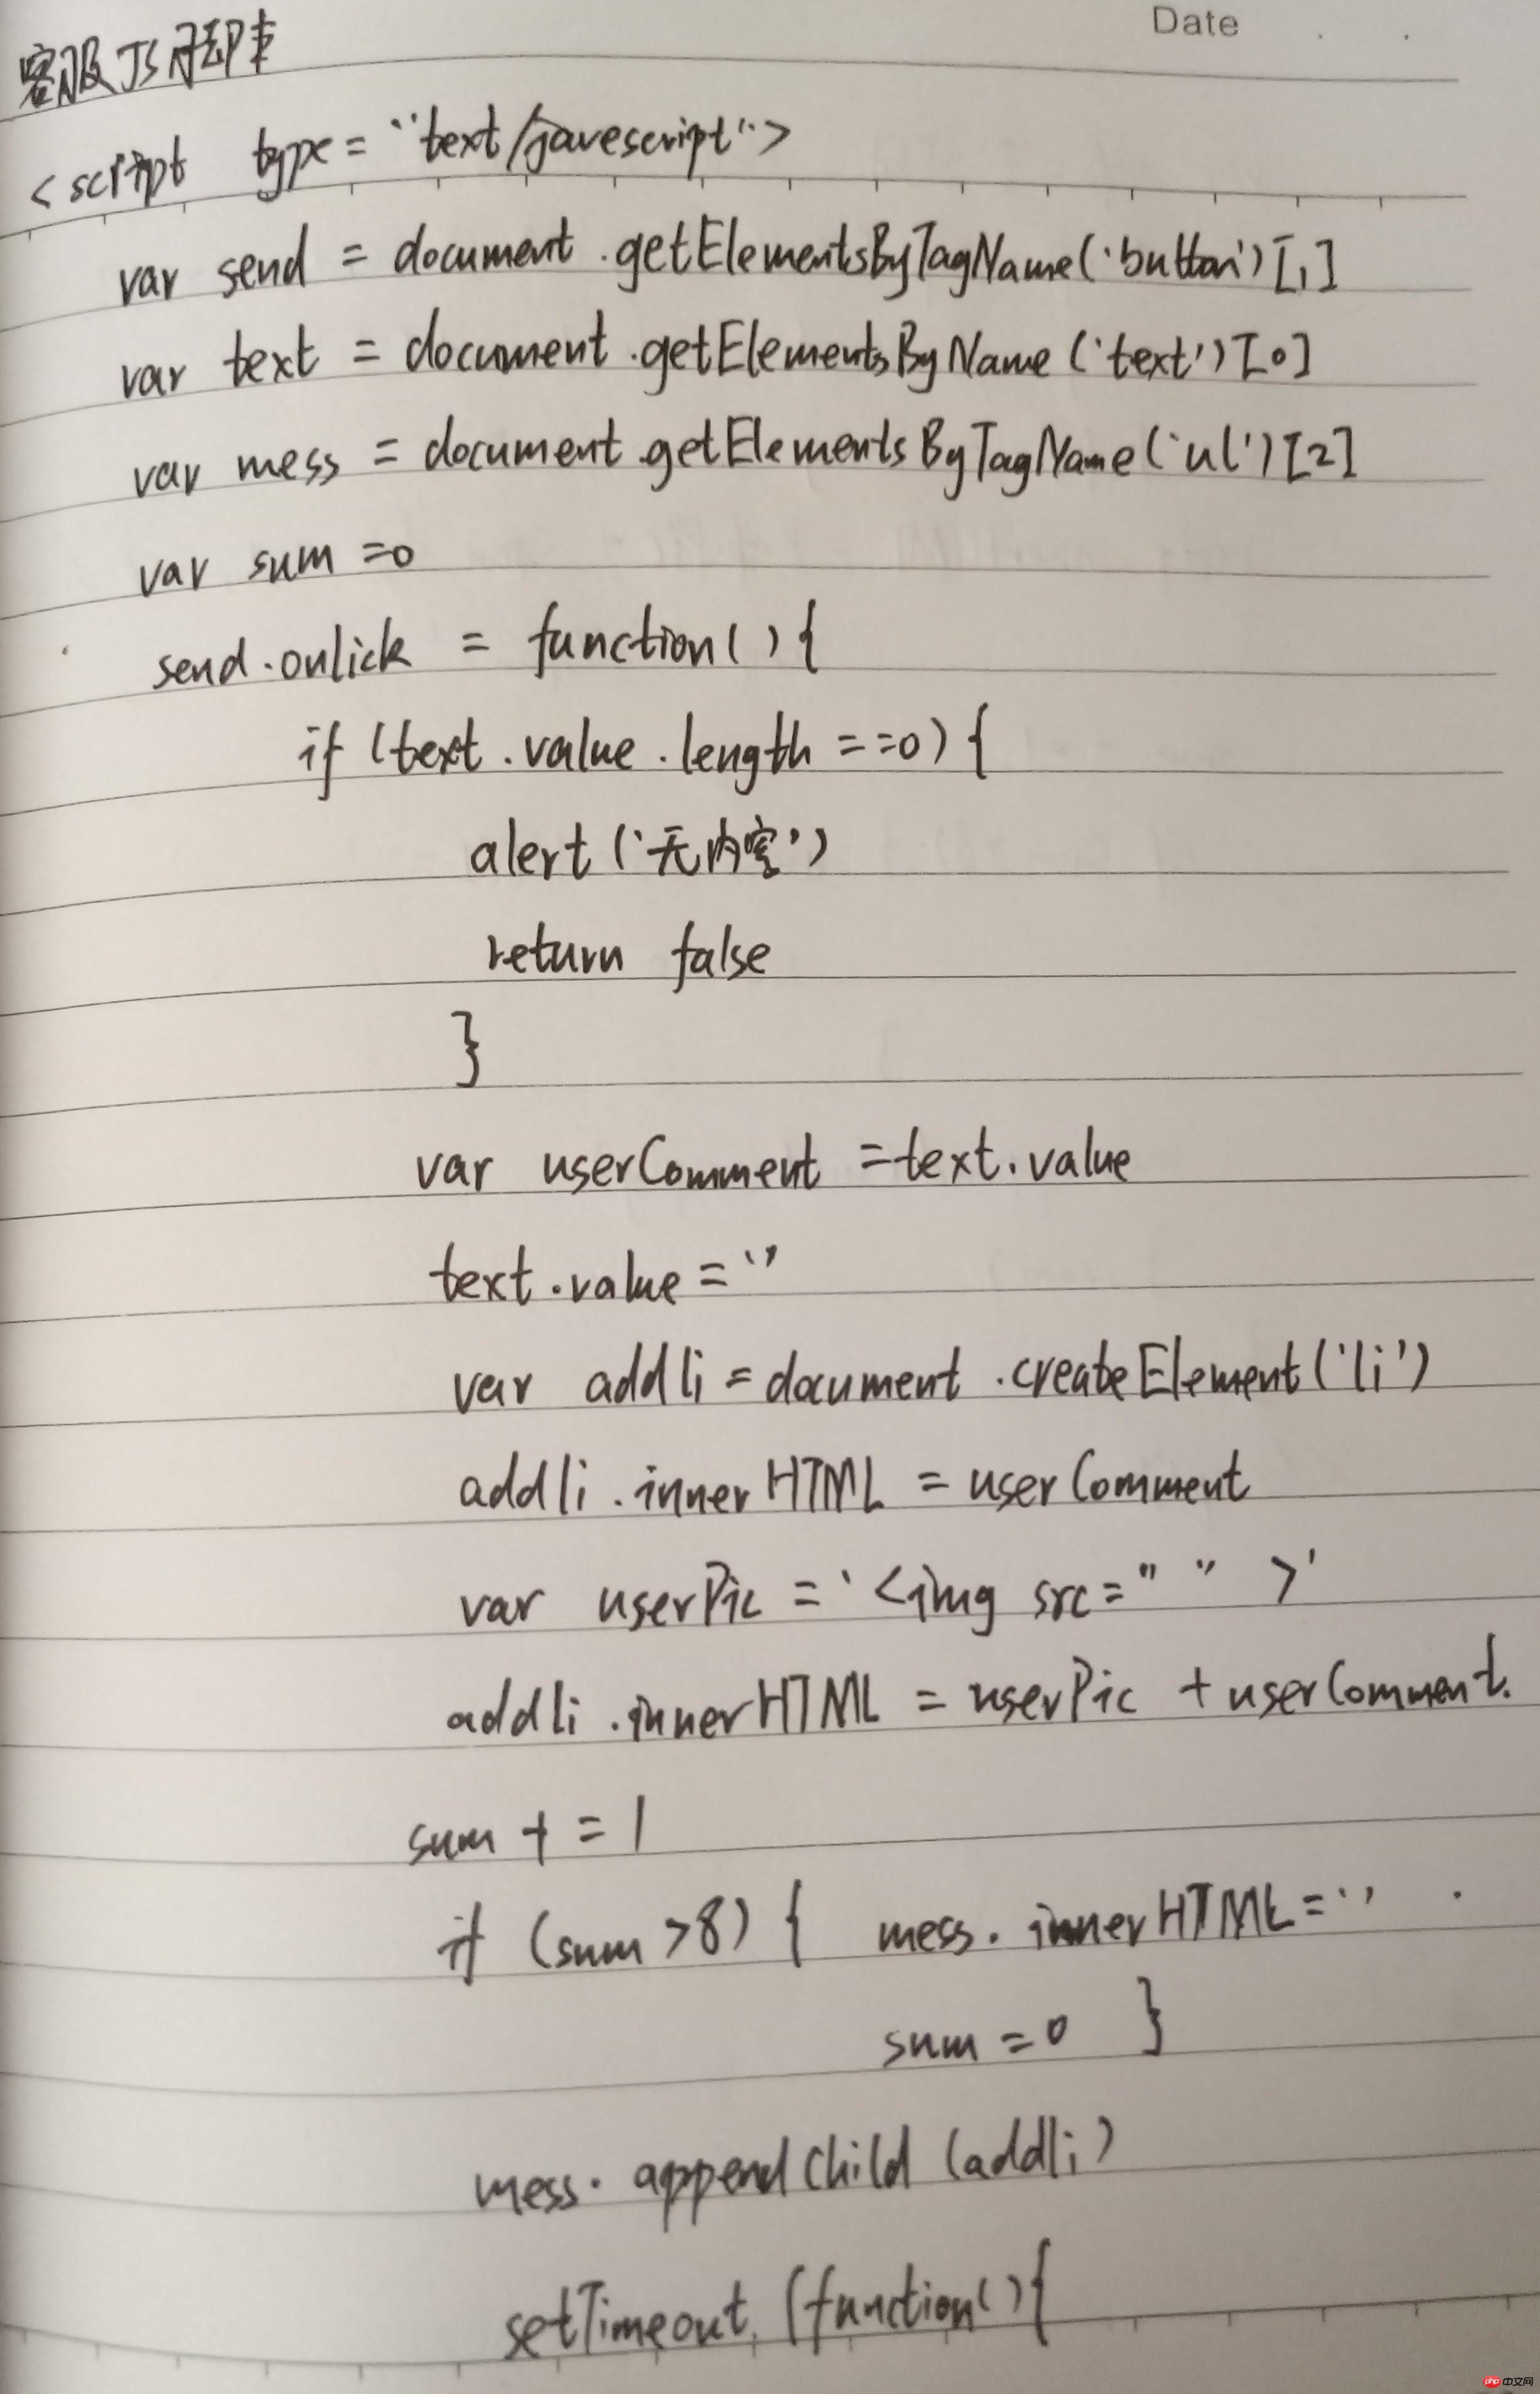 Date
客服JS部
<script type="text/javescript">
var send = document.getElementsByTagName('button')[1]
var text = document.getElementsByName('text')[0]
var mess = document.getElementsByTagName('ul')[2]
var sum =0
send.onlick = function(){
if (text.value.length ==0) {
alert('无内容')
return false
}
var userComment =text.value
text.value=''
var addli = document.createElement('li')
addli.innerHTML = userComment
var userPic = '<img src=" " >'
addli.innerHTML = userPic + userComment.
sum += 1
if (sum >8) { mess.innerHTML=''
sum =0 }
mess.appendChild (addli)
setTimeout (function(){
php 中文网